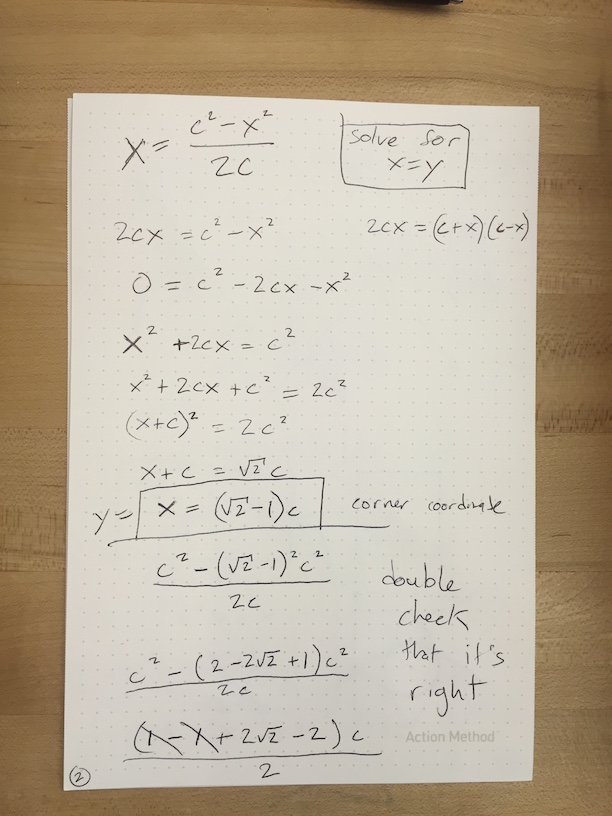 x = (c² - x²) / 2c
solve for
x=y
2cx = c² - x²
2cx = (c+x)(c-x)
0 = c² - 2cx - x²
x² + 2cx = c²
x² + 2cx + c² = 2c²
(x+c)² = 2c²
x+c = √2 c
y = x = (√2 - 1)c
corner coordinate
(c² - (√2 - 1)² c²) / 2c
double
check
that it's
right
(c² - (2 - 2√2 + 1)c²) / 2c
(1 - 1 + 2√2 - 2) c / 2
Action Method
2